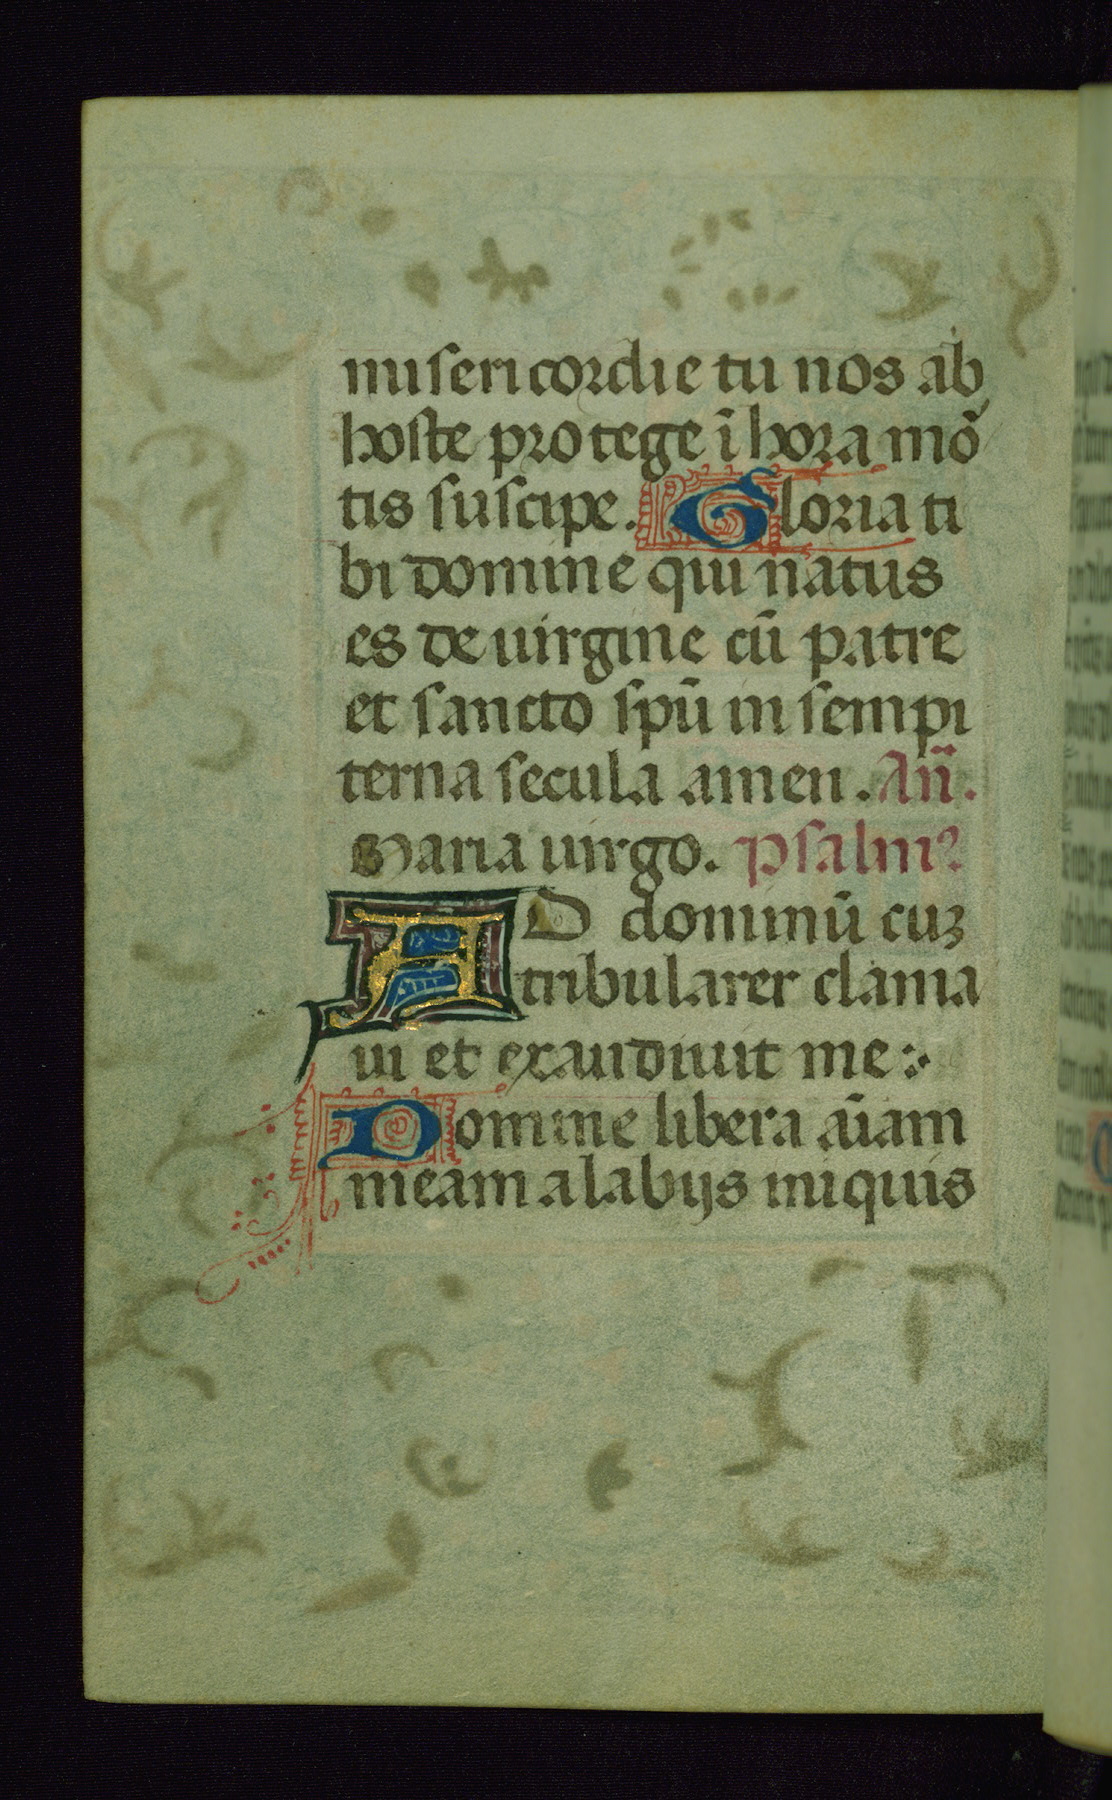 misericordie tu nos ab
hoste protege ī hora mõ
tis suscipe. Gloria ti
bi domine qui natus
es de uirgine cū patre
et sancto spū in sempi
terna secula amen. Añ.
Maria uirgo. psalmꝰ
AD dominū cuꝫ
tribularer clama
ui et exaudiuit me:
Domine libera aīam
meam a labijs iniquis